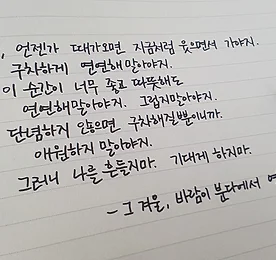 , 언젠가 때가오면 지금처럼 웃으면서 가야지.
구차하게 연연해말아야지.
이 순간이 너무 좋고 따뜻해도
연연해말아야지. 그럽지말아야지.
단념하지 않으면 구차해질뿐이니까.
애원하지 말아야지.
그러니 나를 흔들지마. 기대게 하지마.
- 그 겨울, 바람이 분다에서